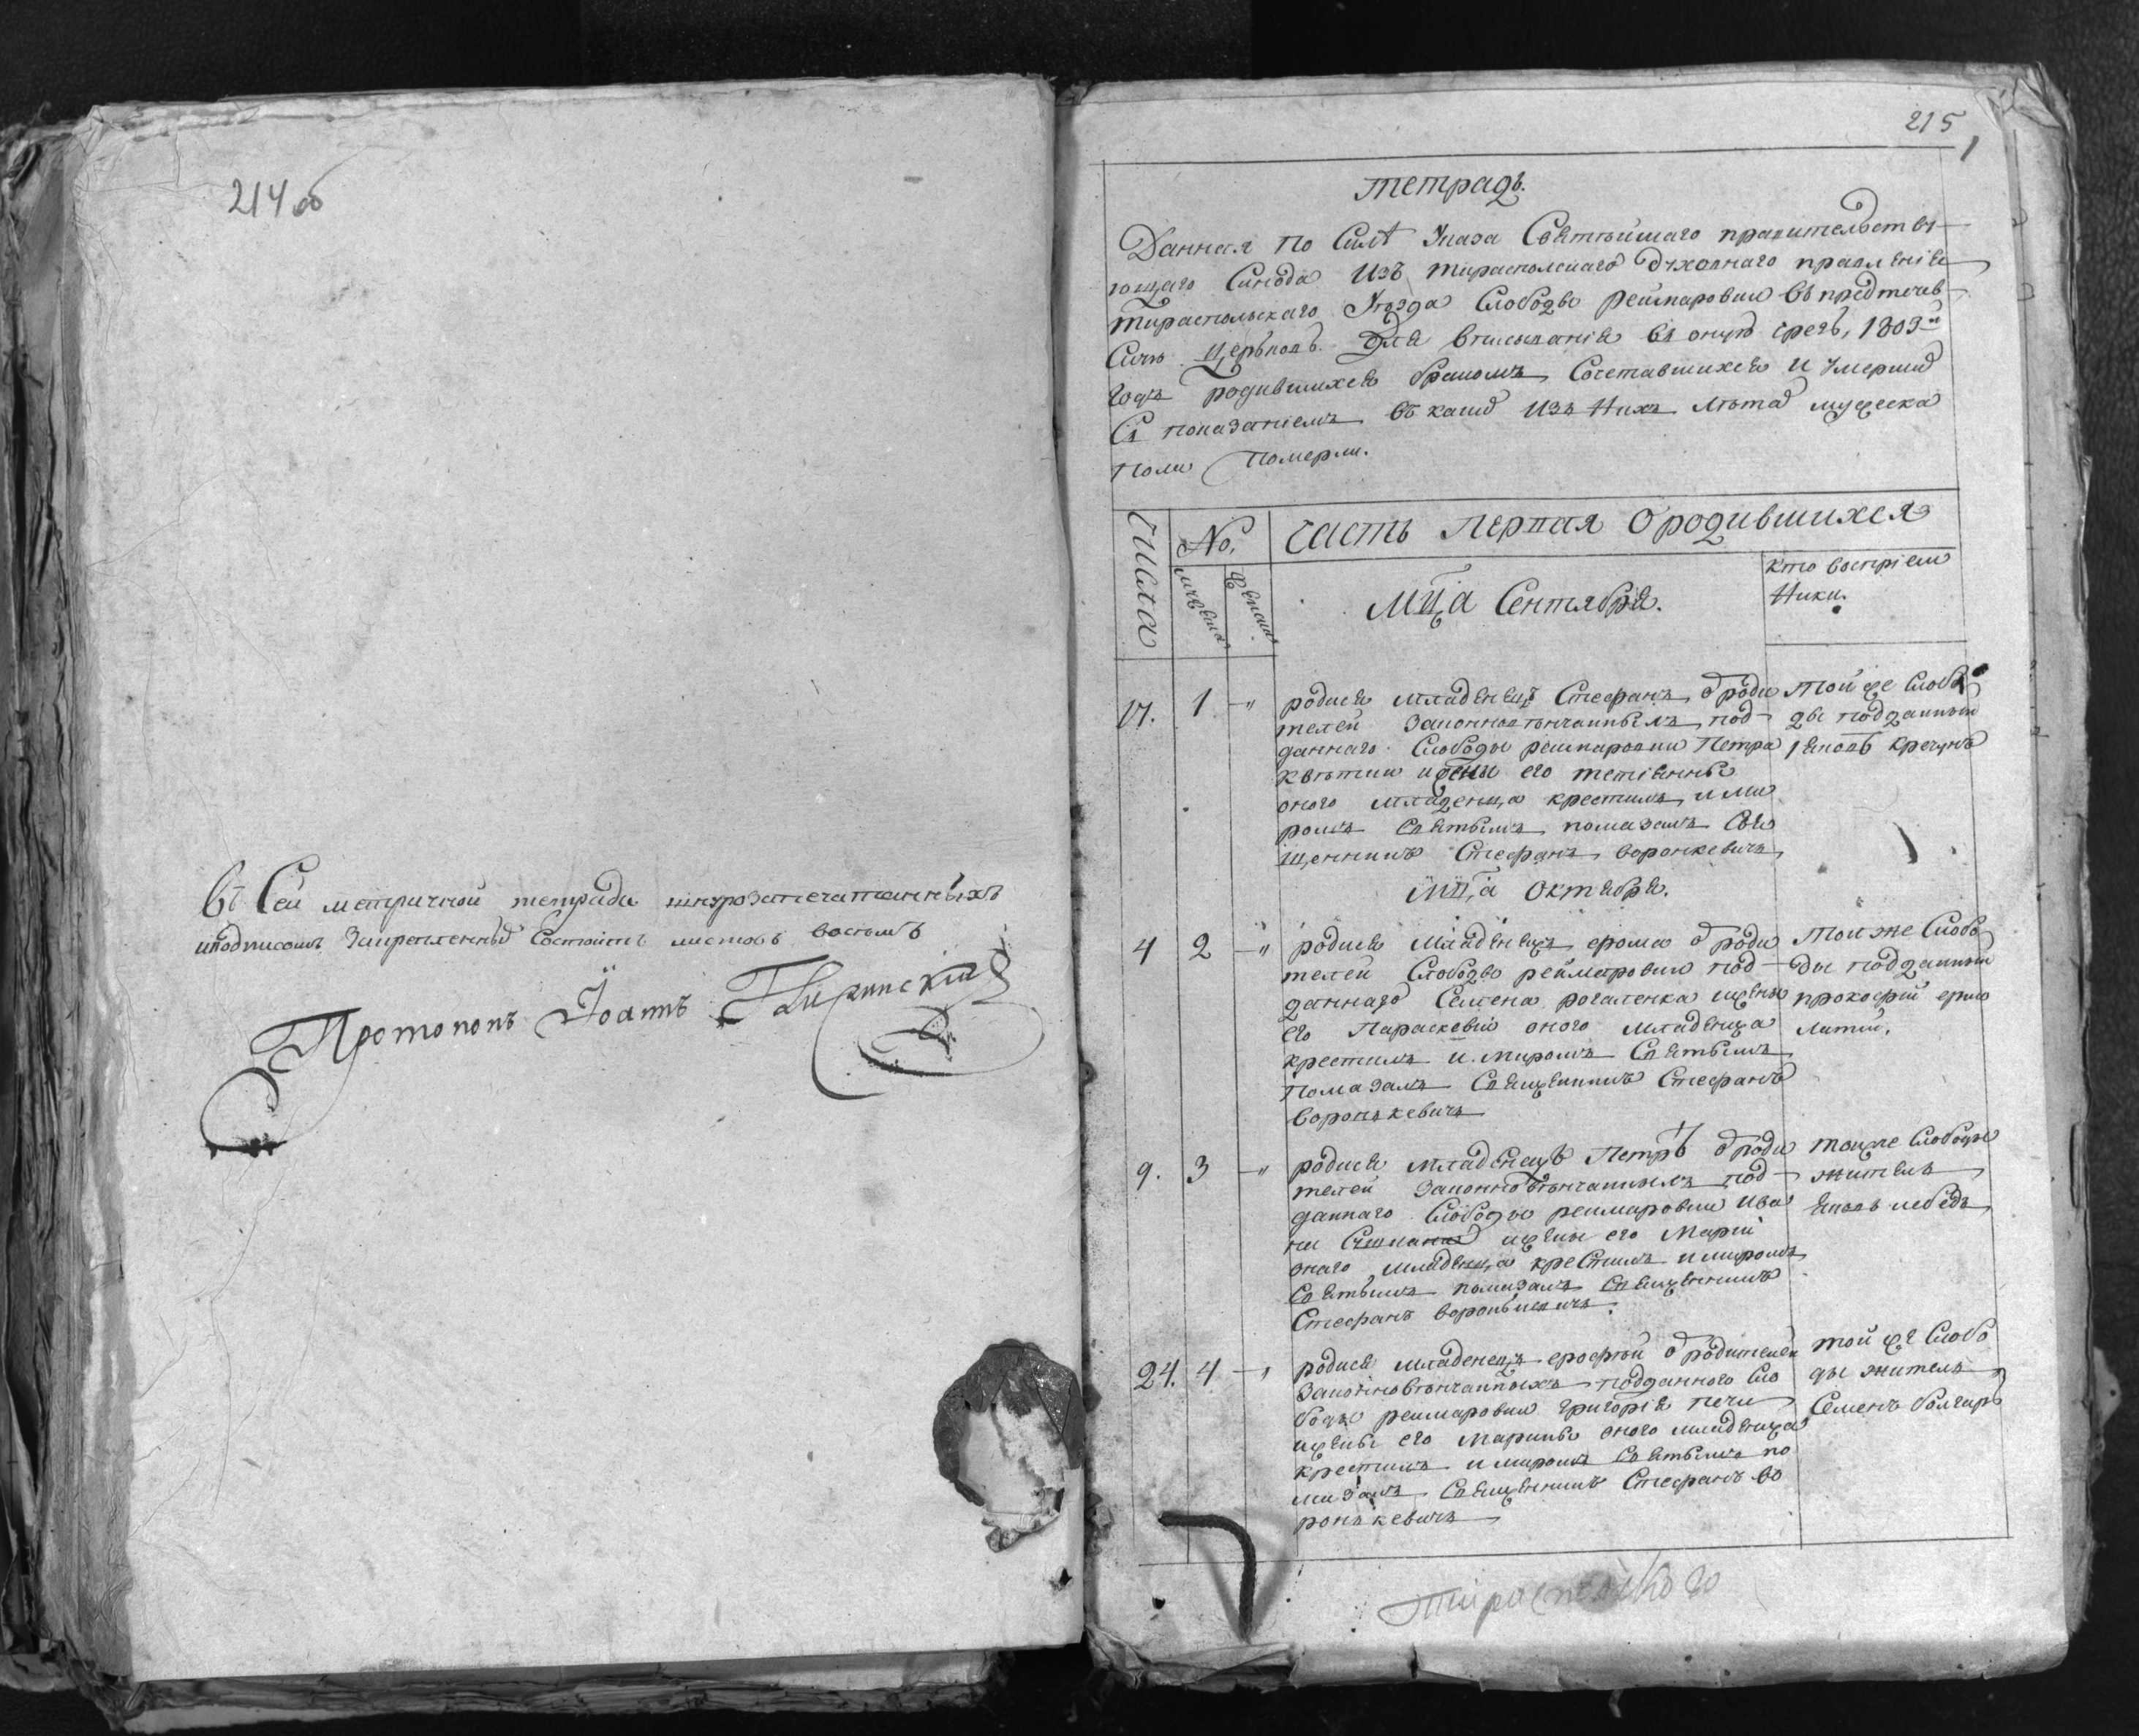 214 об
Въ Сей метричной тетради шнурозапечатанныхъ
иподписомъ Закрепленныхъ Состоитъ листовъ восемъ
Протопопъ Іоаннъ
215
1
тетрадь.
Данная по Силѣ Указа Святѣйшаго правительству
ющаго Синода Изъ тираспольскаго духовнаго правленія
тираспольскаго Уѣзда Слободзѣ реймаровки въ предтечев
Скую Церковь. Для вписыванія въ оную чрезъ, 1803й
Годъ родившихся бракомъ Сочетавшихся и Умершихъ
Съ показаніемъ въ какихъ Изъ Нихъ лѣтахъ мужеска
Полу Померли.
Числа
No.
Часть Первая Ородившихся
мужеска
женска
Мца Сентября.
Кто воспріем
Ники.
17. 1 — " родися младенецъ Стефанъ ѿ роди
телей Законновѣнчанныхъ под
даннаго Слободы реймаровки Петра
Квѣтки ижени его тетіянны
оного младенца крестилъ и ми
ромъ Святымъ помазалъ Свя
щенникъ Стефанъ воронкевичъ
Той же Слобо
ды подданный
Яковъ кречунъ
Мца Октября.
4 2 — " родися Младенецъ ерома ѿ роди
телей Слободзѣ реймаровки под
даннаго Семена рогаленка ижены
его Параскевіи оного младенца
крестилъ и миромъ Святымъ
Помазалъ Священникъ Стефанъ
воронькевичъ
Той же Слобо
ды подданный
прокофій
9. 3 — " родися младенецъ Петръ ѿ роди
телей Законновѣнчанныхъ под
даннаго Слободы реймаровки Ива
на ижены его Маріи
онаго младенца крестилъ и миромъ
Святымъ помазалъ Священникъ
Стефанъ воронькевичъ.
Тойже Слободы
житель
Яковъ лебедь
24. 4 — " родися младенецъ ерофтей ѿ родителей
Законновѣнчанныхъ подданного Сло
боды реймаровки григорія печи
ижены его Маринны оного младенца
крестилъ и миромъ Святымъ по
мазалъ Священникъ Стефанъ во
ронькевичъ
той же Слобо
ды житель
Семенъ болгаръ
Тираспольского